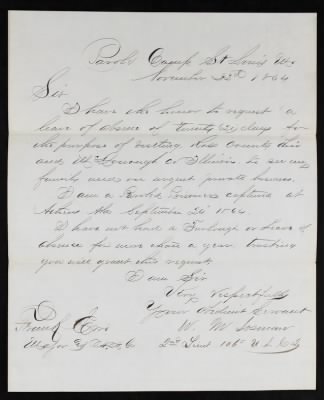 Parole Camp St Louis Mo
November 22nd 1864
Sir
I have the honor to request a
leave of absence of twenty (20) days for
the purpose of visiting Ross County Ohio
and McDonough Co Illinois to see my
family and on urgent private business.
I am a Paroled Prisoner captured at
Athens Ala September 24th 1864.
I have not had a Furlough or leave of
absence for more than a year, trusting
you will grant this request.
I am Sir
Very Respectfully
Your Obedient Servant
W. M.
2nd Lieut 106th U.S.C.I.
Frank Eno
Major